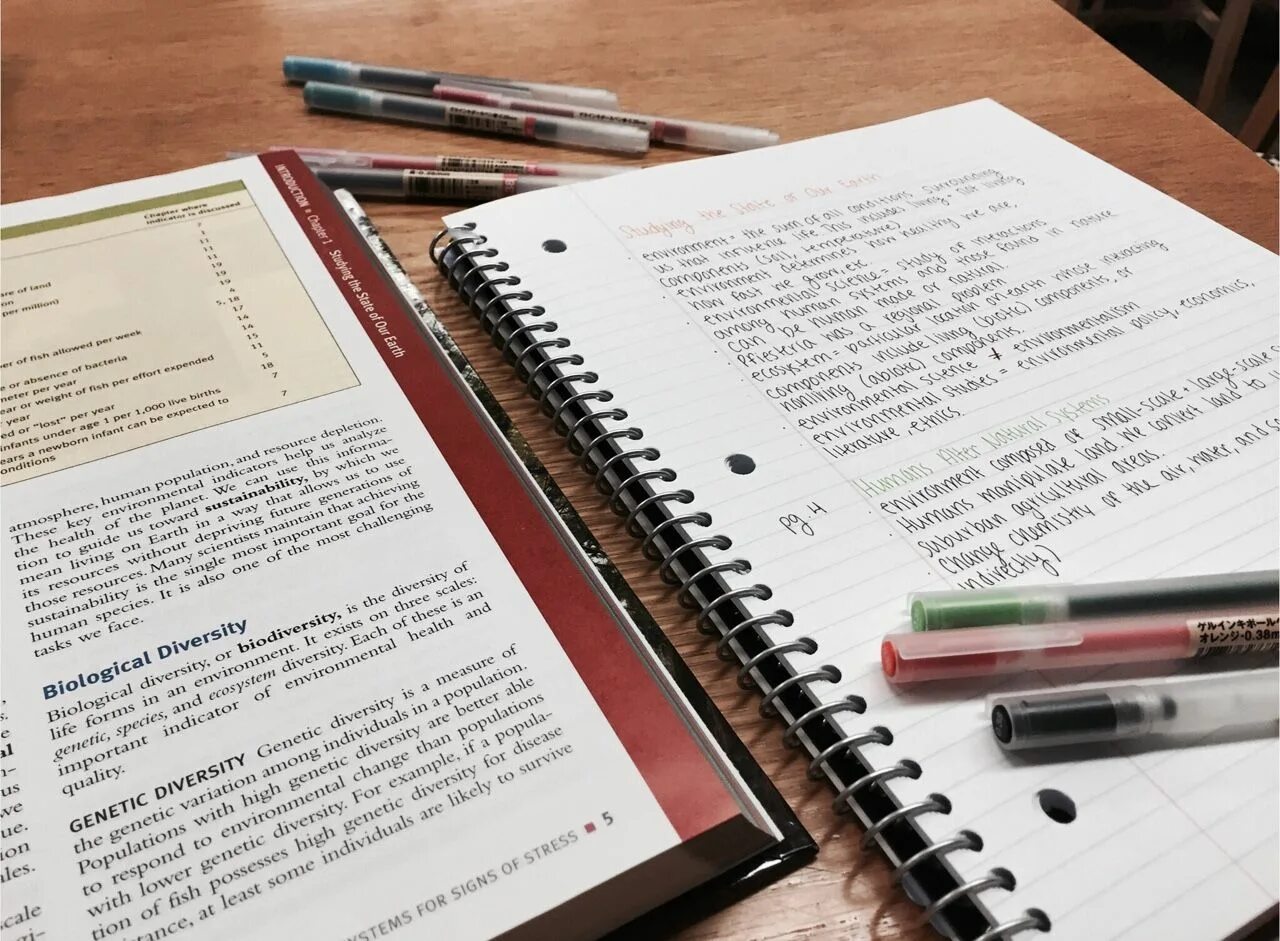 Chapter where
indicator is discussed
7
1
11
11
11
19
19
4
5, 18
17
14
14
15
11
5
18
7
7
are of land
on
per million)
er of fish allowed per week
e or absence of bacteria
meter per year
ear or weight of fish per effort expended
year
ed or "lost" per year
infants under age 1 per 1,000 live births
ears a newborn infant can be expected to
onditions
INTRODUCTION Chapter 1 Studying the State of Our Earth
atmosphere, human population, and resource depletion.
These key environmental indicators help us analyze
the health of the planet. We can use this informa-
tion to guide us toward sustainability, by which we
mean living on Earth in a way that allows us to use
its resources without depriving future generations of
those resources. Many scientists maintain that achieving
sustainability is the single most important goal for the
human species. It is also one of the most challenging
tasks we face.
Biological Diversity
Biological diversity, or biodiversity, is the diversity of
life forms in an environment. It exists on three scales:
genetic, species, and ecosystem diversity. Each of these is an
important indicator of environmental health and
quality.
GENETIC DIVERSITY Genetic diversity is a measure of
the genetic variation among individuals in a population.
Populations with high genetic diversity are better able
to respond to environmental change than populations
with lower genetic diversity. For example, if a popula-
tion of fish possesses high genetic diversity for disease
stance, at least some individuals are likely to survive
YSTEMS FOR SIGNS OF STRESS ■ 5
Studying the State of Our Earth
environment = the sum of all conditions surrounding
us that influence life. This includes living + not living
components (soil, temperature)
environment determines how healthy we are,
how fast we grow, etc
environmental science = study of interactions
among human systems and those found in nature
can be human made or natural
Pfiesteria was a regional problem
ecosystem = particular location on earth whose interacting
components include living (biotic) components, or
nonliving (abiotic) components
environmental science ≠ environmentalism
environmental studies = environmental policy, economics,
literature, ethics.
Humans Alter Natural Systems
pg. 4
environment composed of small-scale + large-scale
Humans manipulate land we convert land to
suburban agricultural areas.
change chemistry of the air, water, and
indirectly)
ゲルインキボール
オレンジ・0.38m